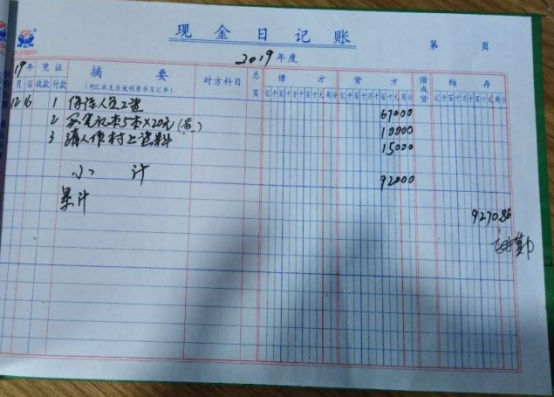 现金日记账
2019年度
第 页
19年 凭证 摘要 对方科目 总页 借方 贷方 借或贷 结存
月 日 收款 付款 亿千百十万千百十元角分 亿千百十万千百十元角分 亿千百十万千百十元角分
12 16 1 保洁人员工资 67000
2 买笔记本5本×20元 10000
3 请人做村上资料 15000
小计 92000
累计
927086